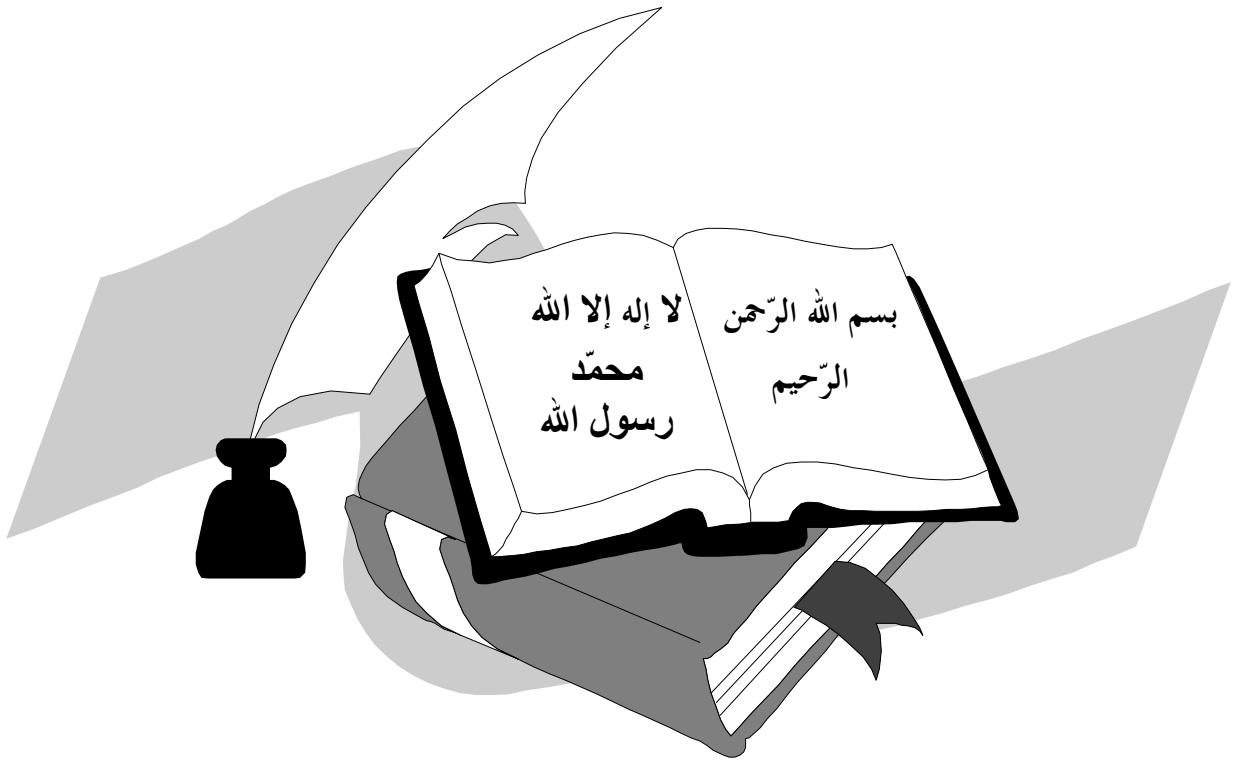 بسم الله الرّحمن
الرّحيم
لا إله إلا الله
محمّد
رسول الله